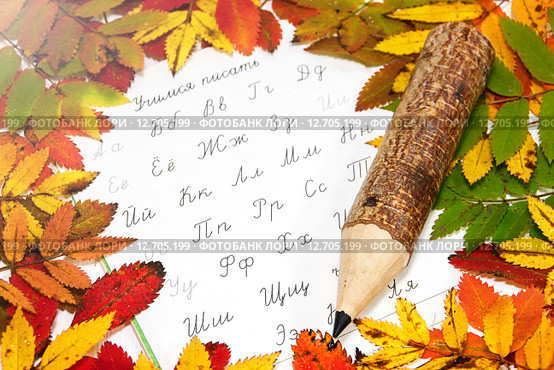 Учимся писать
Аа Бб Вв Гг Дд
Ее Ёё Жж Зз Ии
Йй Кк Лл Мм Нн
Пп Рр Сс Т
Уу Фф Хх
Шш Щщ ъ
Ээ Яя
ФОТОБАНК ЛОРИ - 12.705.199 - ФОТОБАНК ЛОРИ - 12.705.199 - ФОТОБАНК ЛОРИ - 12.705.199
ФОТОБАНК ЛОРИ - 12.705.199 - ФОТОБАНК ЛОРИ - 12.705.199 - ФОТОБАНК ЛОРИ - 12.705.199